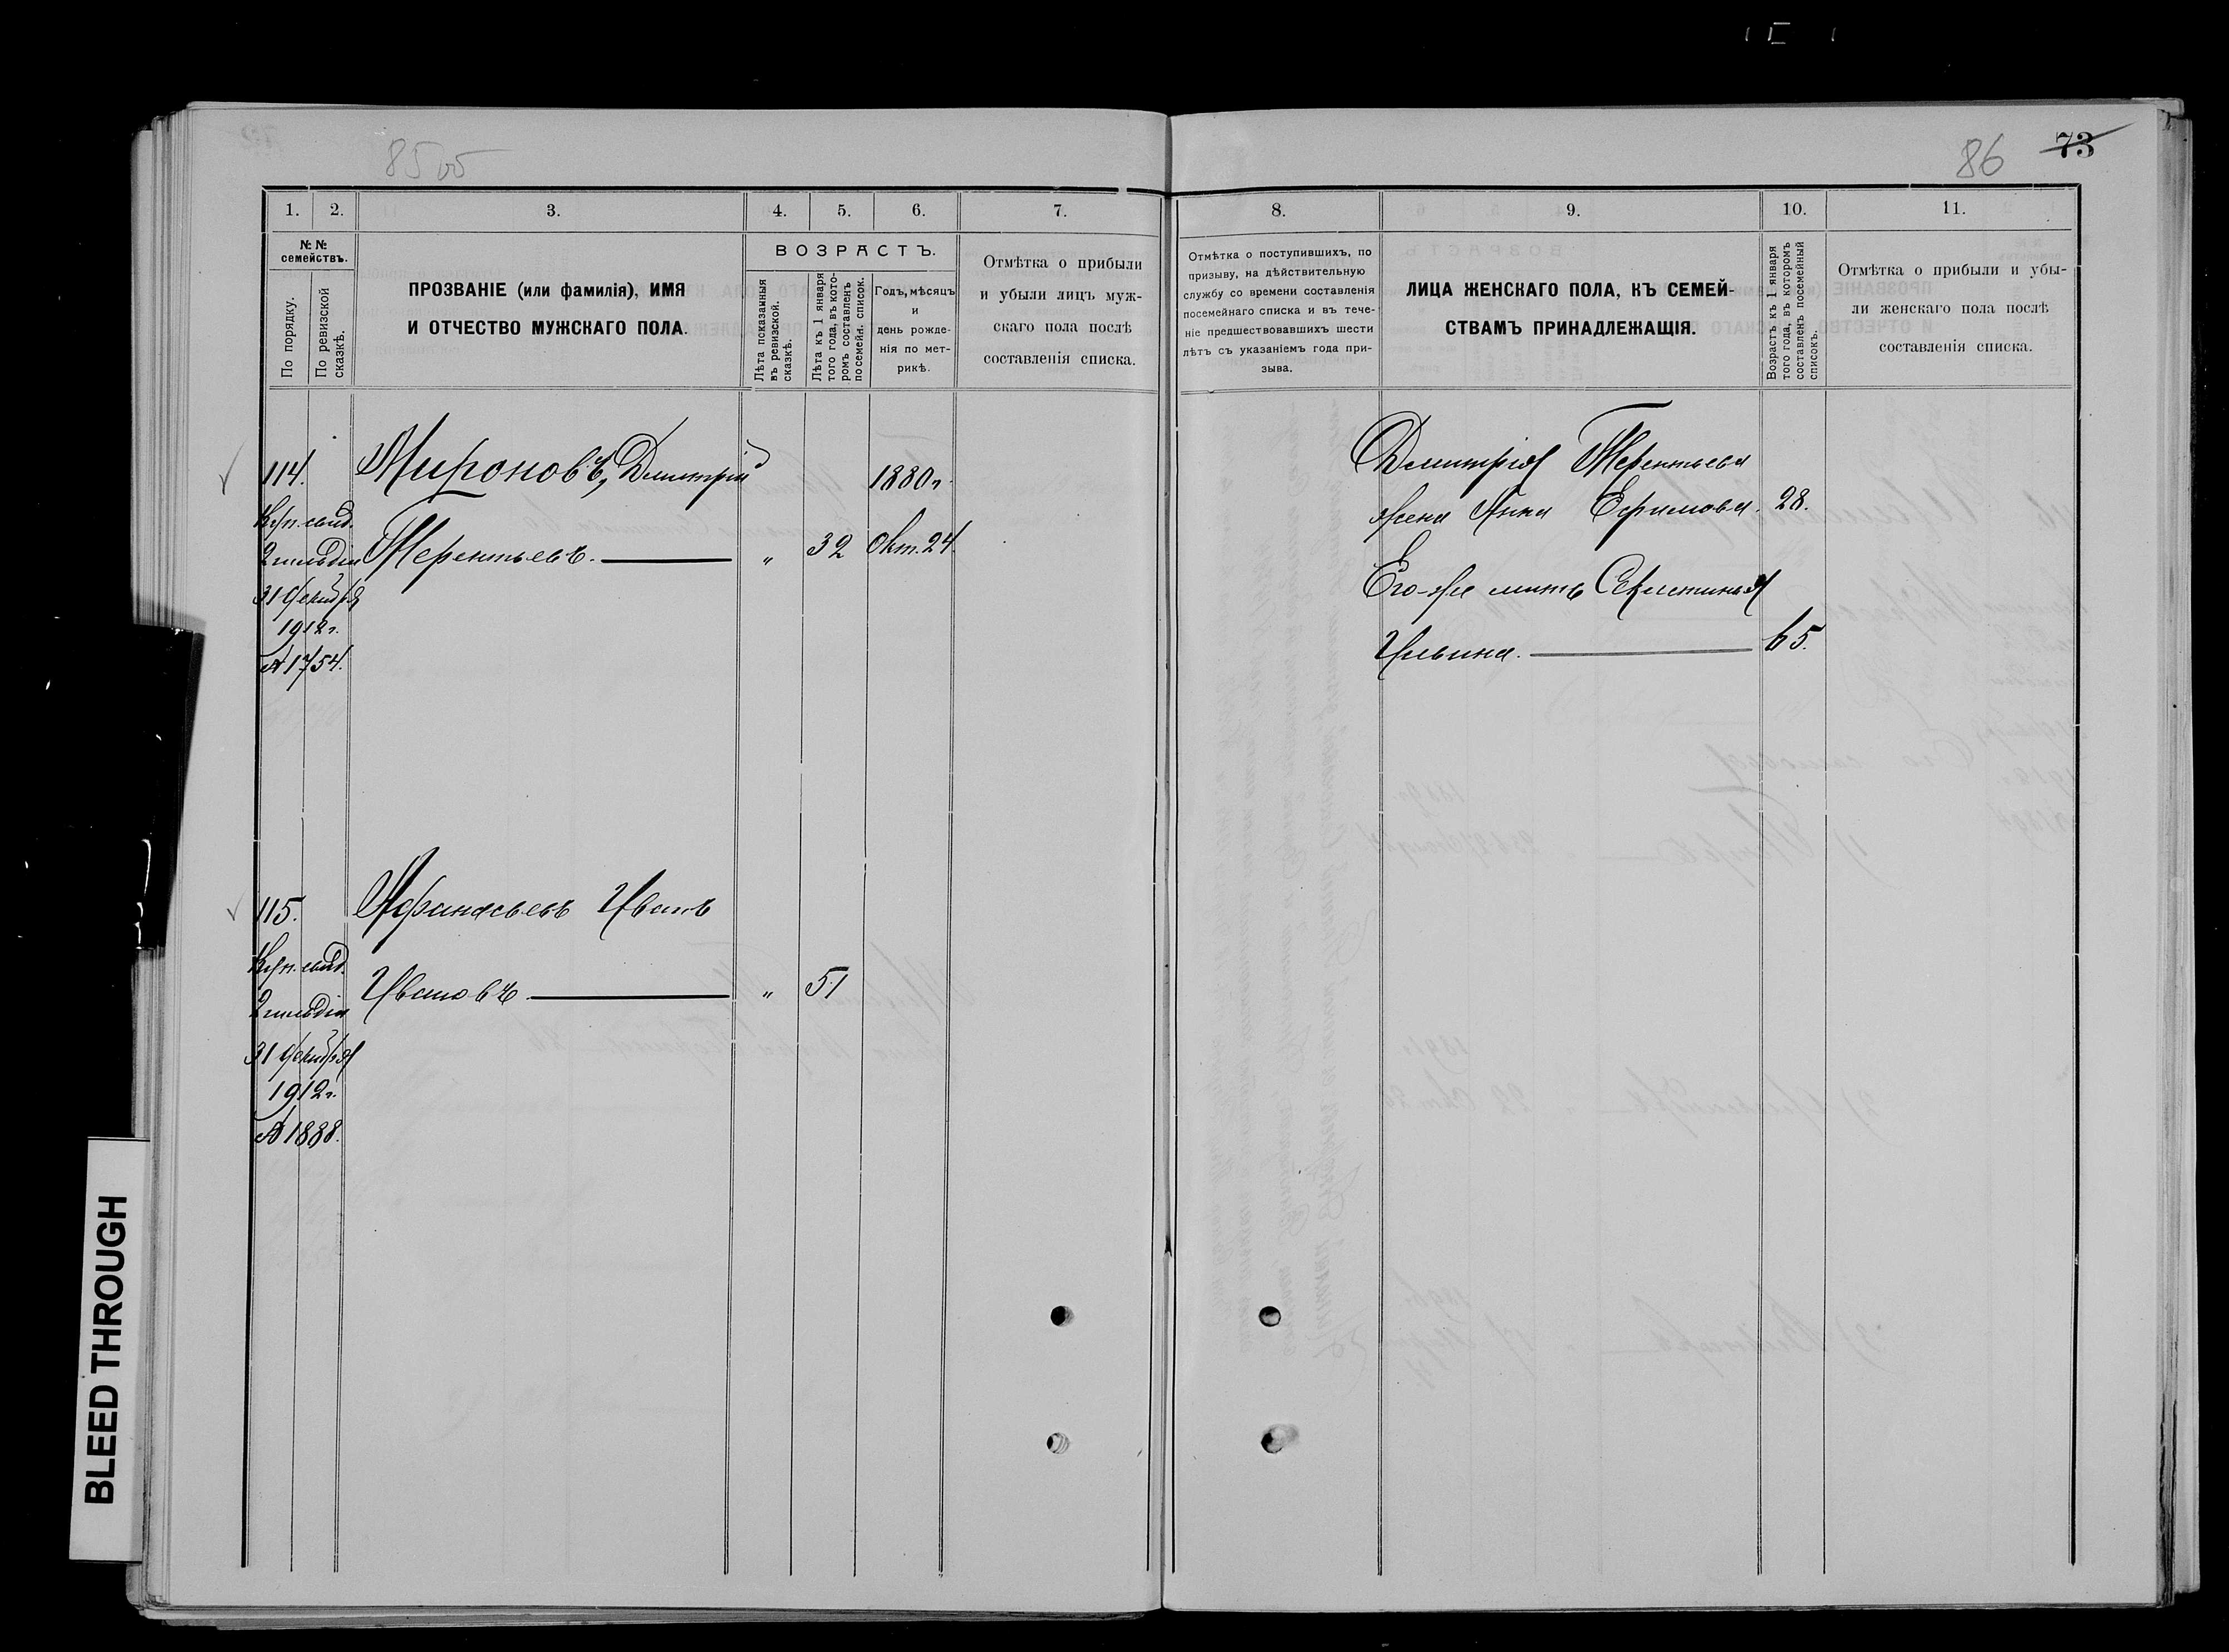 85 об
86 73
1. 2. 3. 4. 5. 6. 7.
№№ семействъ.
По порядку.
По ревизской сказкѣ.
ПРОЗВАНІЕ (или фамилія), ИМЯ
И ОТЧЕСТВО МУЖСКАГО ПОЛА.
ВОЗРАСТЪ.
Лѣта показанныя
въ ревизской
сказкѣ.
Лѣта къ 1 января
того года, въ кото-
ромъ составленъ
посемейн. список.
Годъ, мѣсяцъ
и
день рожде-
нія по мет-
рикѣ.
Отмѣтка о прибыли
и убыли лицъ муж-
скаго пола послѣ
составленія списка.
114. Мироновъ, Димитрій 1880 г.
Куп. свид.
2 гильдіи Терентьевъ. — " 32 Окт. 24.
31 Декабря
1912 г.
№ 1754.
115. Афанасьевъ Иванъ
Куп. свид.
2 гильдіи Ивановъ — " 51
31 Декабря
1912 г.
№ 1888.
8. 9. 10. 11.
Отмѣтка о поступившихъ, по
призыву, на дѣйствительную
службу со времени составленія
посемейнаго списка и въ тече-
ніе предшествовавшихъ шести
лѣтъ съ указаніемъ года при-
зыва.
ЛИЦА ЖЕНСКАГО ПОЛА, КЪ СЕМЕЙ-
СТВАМЪ ПРИНАДЛЕЖАЩІЯ.
Возрастъ къ 1 января
того года, въ которомъ
составленъ посемейный
списокъ.
Отмѣтка о прибыли и убы-
ли женскаго пола послѣ
составленія списка.
Димитрія Терентьева
жена Анна Ефимова. 28.
Его-же мать
Ильина. — 65.
BLEED THROUGH